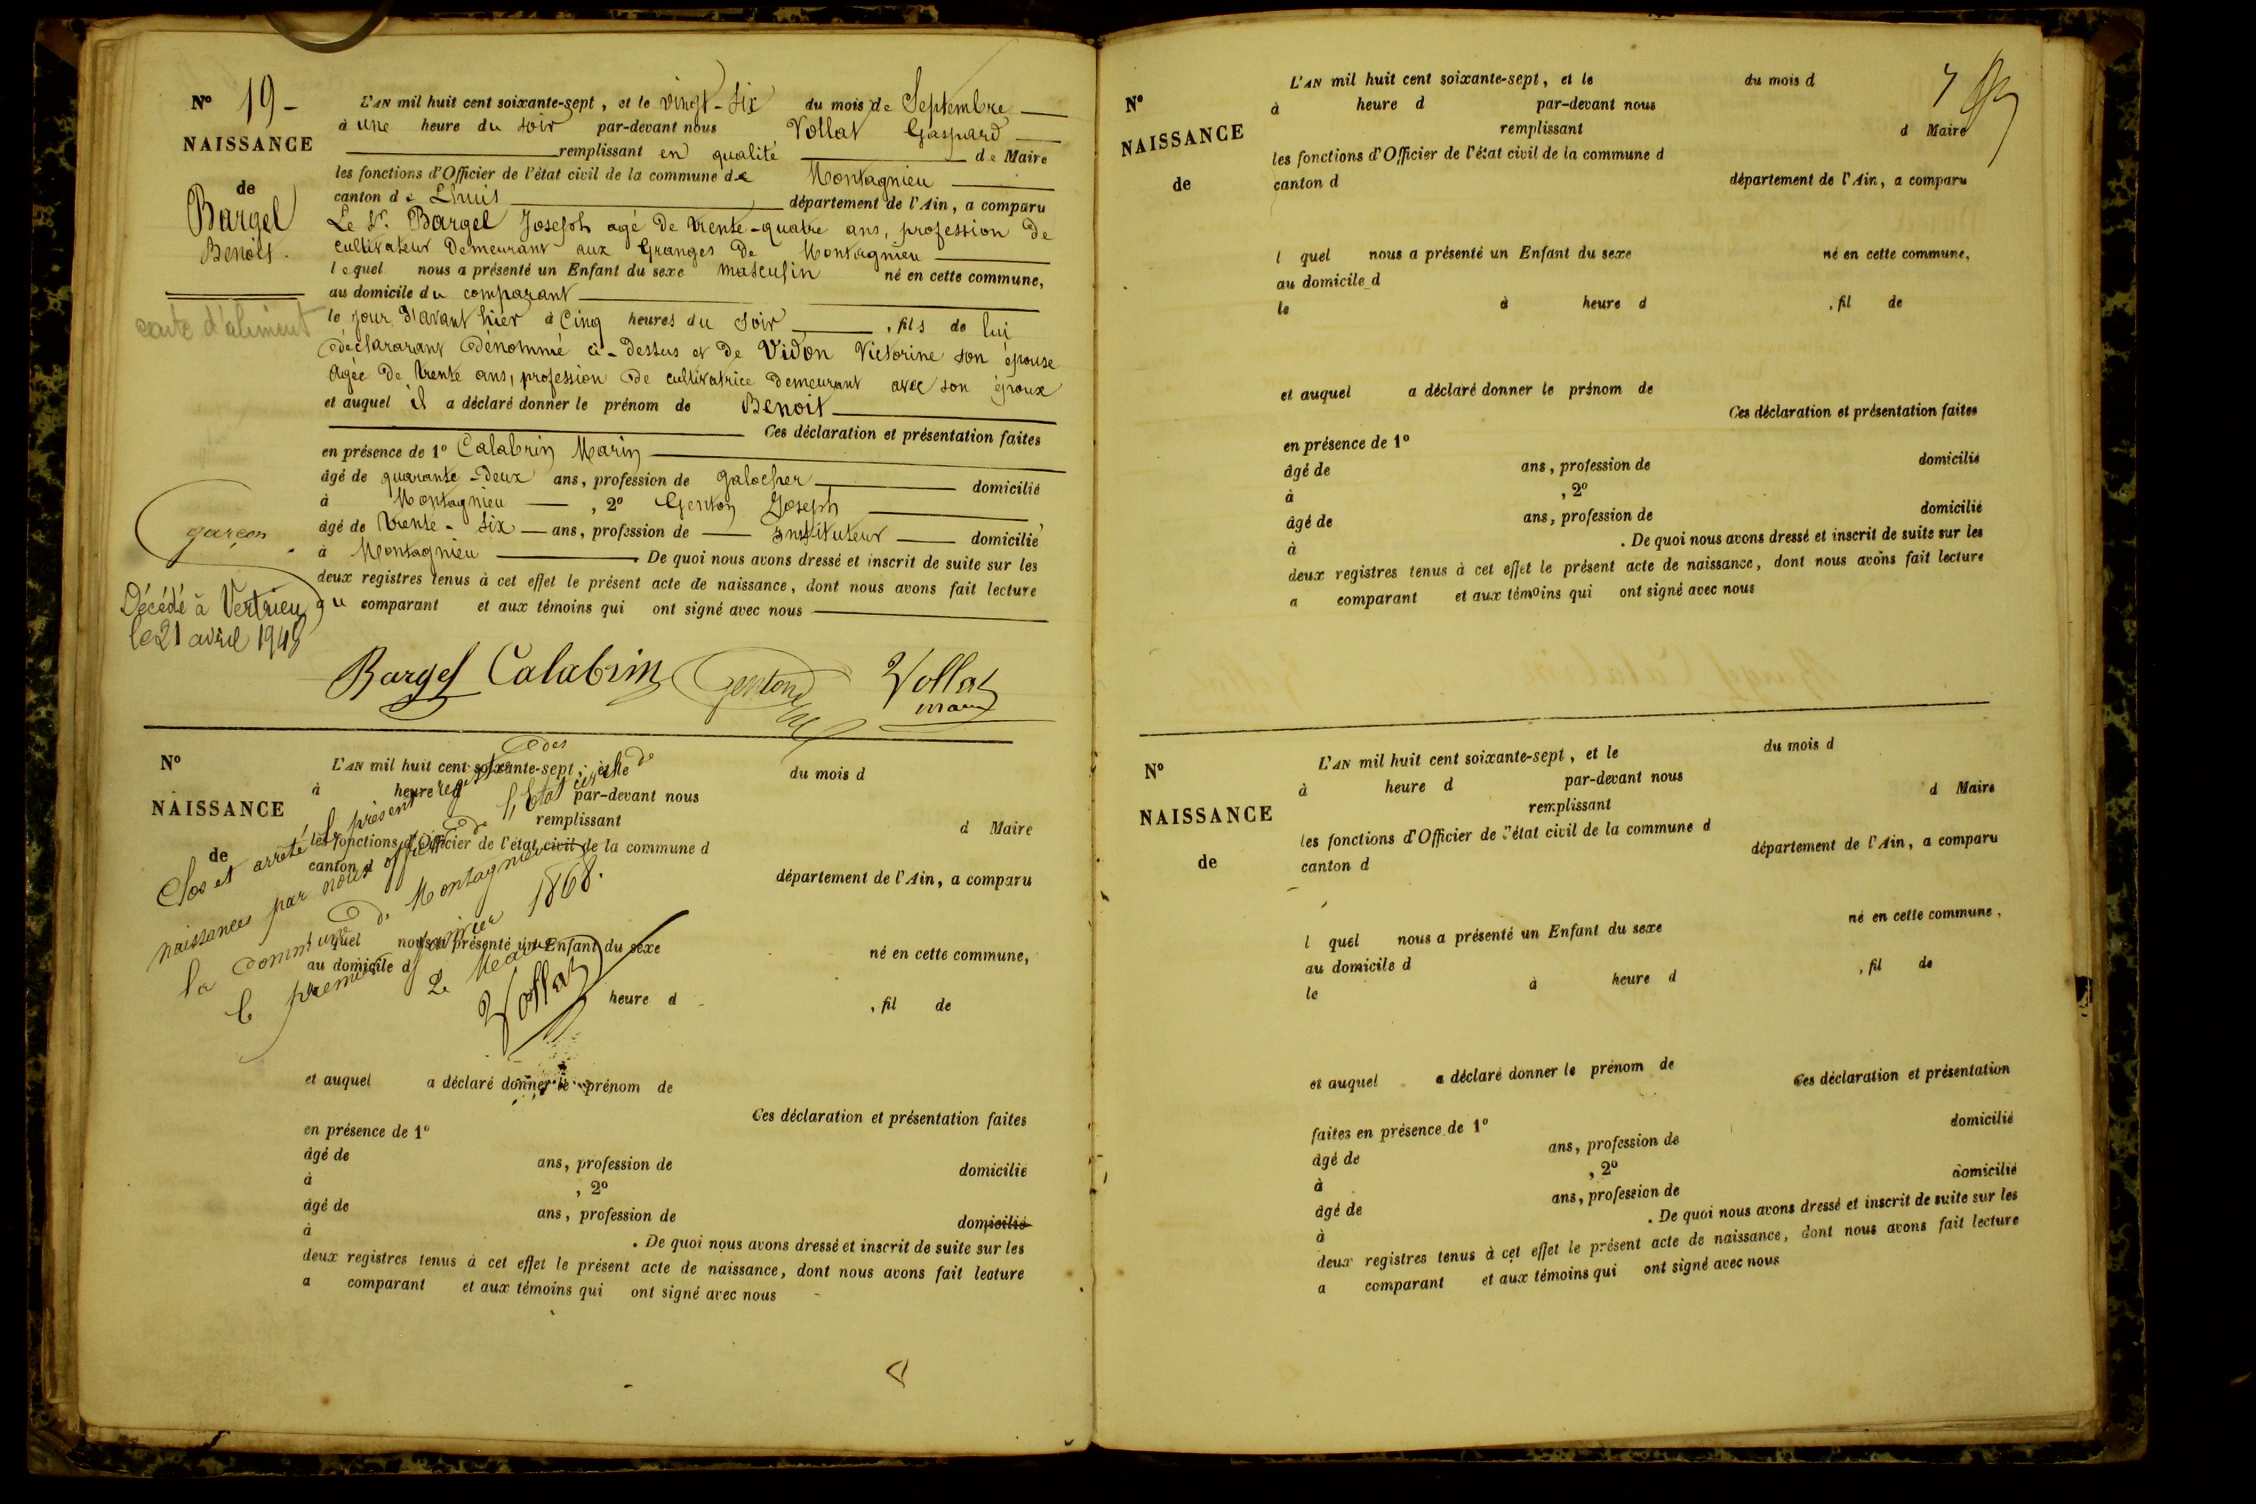 N° 19 -
NAISSANCE
de
Bargel
Benoit.
carte d'aliment
garçon
Décédé à Vertrieu
le 21 avril 1948
L'AN mil huit cent soixante-sept, et le vingt-six du mois de Septembre
à une heure du soir par-devant nous Vollat Gaspard
remplissant en qualité de Maire
les fonctions d'Officier de l'état civil de la commune de Montagnieu
canton de Lhuis département de l'Ain, a comparu
Le Sr. Bargel Joseph agé de trente-quatre ans, profession de
cultivateur demeurant aux Granges de Montagnieu
lequel nous a présenté un Enfant du sexe masculin né en cette commune,
au domicile du comparant
le jour d'avant hier à cinq heures du soir, fils de lui
déclararant dénommé ci-dessus et de Vidon Victorine son épouse
agée de trente ans, profession de cultivatrice demeurant avec son époux
et auquel il a déclaré donner le prénom de Benoit
Ces déclaration et présentation faites
en présence de 1° Calabrin Marin
âgé de quarante-deux ans, profession de galocher domicilié
à Montagnieu, 2° Genton Joseph
âgé de trente-six ans, profession de Instituteur domicilié
à Montagnieu. De quoi nous avons dressé et inscrit de suite sur les
deux registres tenus à cet effet le présent acte de naissance, dont nous avons fait lecture
au comparant et aux témoins qui ont signé avec nous
Bargel Calabrin Genton Vollat
maire
N°
NAISSANCE
de
L'AN mil huit cent soixante-sept, et le du mois d
à heure d par-devant nous
remplissant d Maire
les fonctions d'Officier de l'état civil de la commune d
canton d département de l'Ain, a comparu
l quel nous a présenté un Enfant du sexe né en cette commune,
au domicile d
heure d , fil de
Clos et arrêté le présent registre des
naissances par nous officier de l'Etat civil de
la commune de Montagnieu
le premier janvier 1868.
Le Maire
Vollat
et auquel a déclaré donner le prénom de
Ces déclaration et présentation faites
en présence de 1°
âgé de ans, profession de domicilié
à , 2°
âgé de ans, profession de domicilié
à . De quoi nous avons dressé et inscrit de suite sur les
deux registres tenus à cet effet le présent acte de naissance, dont nous avons fait lecture
a comparant et aux témoins qui ont signé avec nous
7
N°
NAISSANCE
de
L'AN mil huit cent soixante-sept, et le du mois d
à heure d par-devant nous
remplissant d Maire
les fonctions d'Officier de l'état civil de la commune d
canton d département de l'Ain, a comparu
l quel nous a présenté un Enfant du sexe né en cette commune,
au domicile d
le à heure d , fil de
et auquel a déclaré donner le prénom de
Ces déclaration et présentation faites
en présence de 1°
âgé de ans, profession de domicilié
à , 2°
âgé de ans, profession de domicilié
à . De quoi nous avons dressé et inscrit de suite sur les
deux registres tenus à cet effet le présent acte de naissance, dont nous avons fait lecture
a comparant et aux témoins qui ont signé avec nous
N°
NAISSANCE
de
L'AN mil huit cent soixante-sept, et le du mois d
à heure d par-devant nous
remplissant d Maire
les fonctions d'Officier de l'état civil de la commune d
canton d département de l'Ain, a comparu
l quel nous a présenté un Enfant du sexe né en cette commune,
au domicile d
le à heure d , fil de
et auquel a déclaré donner le prénom de
Ces déclaration et présentation
faites en présence de 1°
âgé de ans, profession de domicilié
à , 2°
âgé de ans, profession de domicilié
à . De quoi nous avons dressé et inscrit de suite sur les
deux registres tenus à cet effet le présent acte de naissance, dont nous avons fait lecture
a comparant et aux témoins qui ont signé avec nous